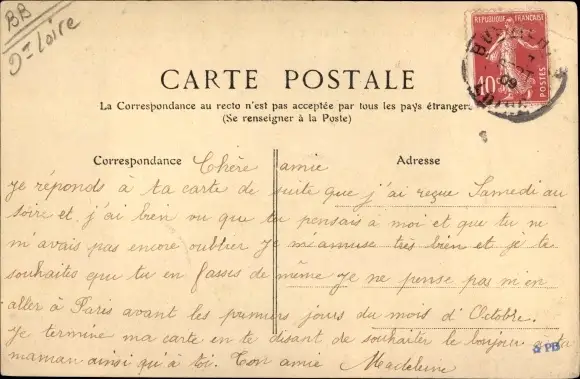 BB
Ire Loire
REPUBLIQUE FRANÇAISE
10c
POSTES
09
CARTE POSTALE
La Correspondance au recto n'est pas acceptée par tous les pays étrangers
(Se renseigner à la Poste)
Correspondance
Adresse
Chère amie
Je réponds à ta carte de suite que j'ai reçue Samedi au
soire et j'ai bien vu que tu pensais à moi et que tu ne
m'avais pas encore oublier Je m'amuse très bien et je te
souhaites que tu en fasses de même Je ne pense pas m'en
aller à Paris avant les premiers jours du mois d'Octobre.
Je termine ma carte en te disant de souhaiter le bonjour a ta
maman ainsi qu'à toi. Ton amie Madeleine
PB